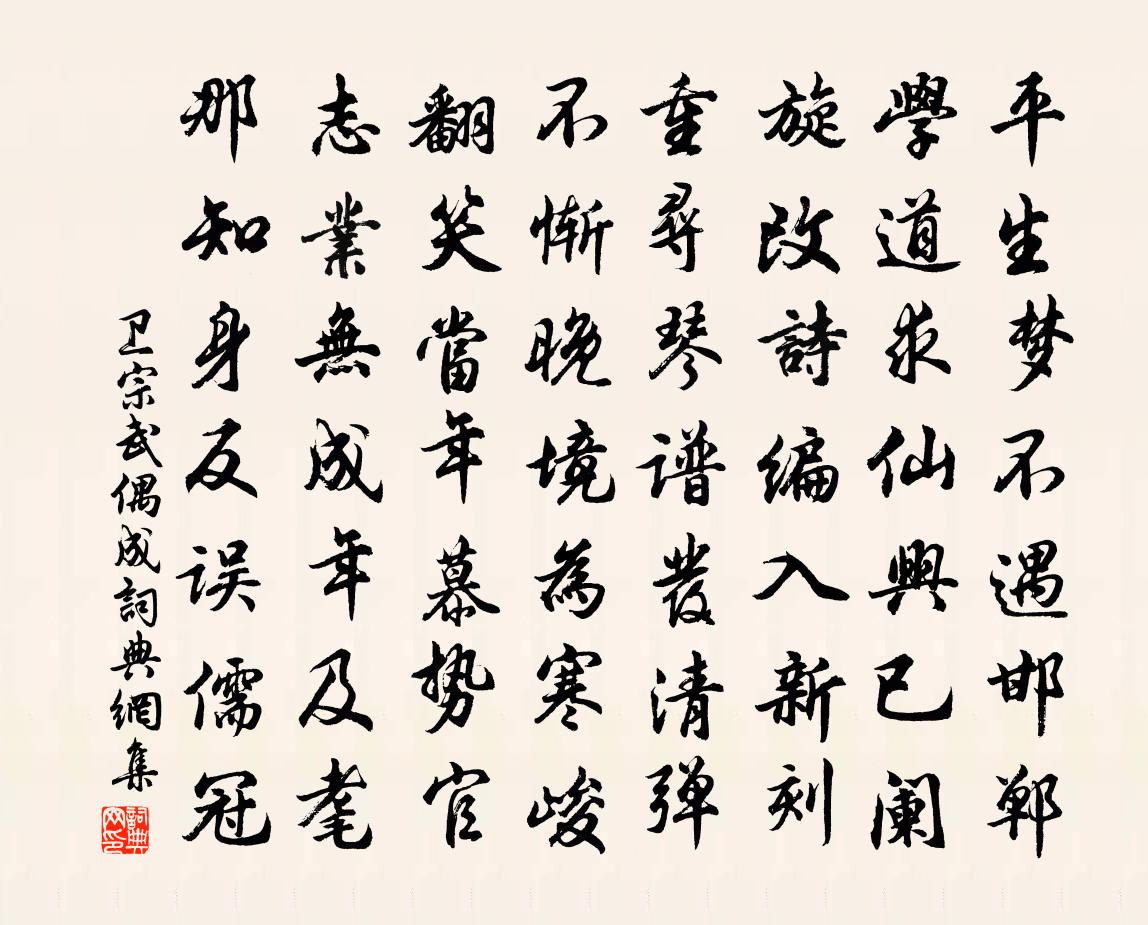 平生梦不遇邯鄲
學道求仙興已阑
旋改詩编入新刻
重尋琴谱發清弹
不惭晚境為寒峻
翻笑當年慕势官
志業無成年及耄
那知身反误儒冠
卫宗武偶成詞典網集
詞典网印